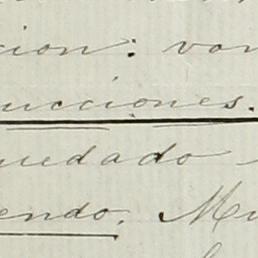 cion: von
ucciones.
uedado
endo. Mu